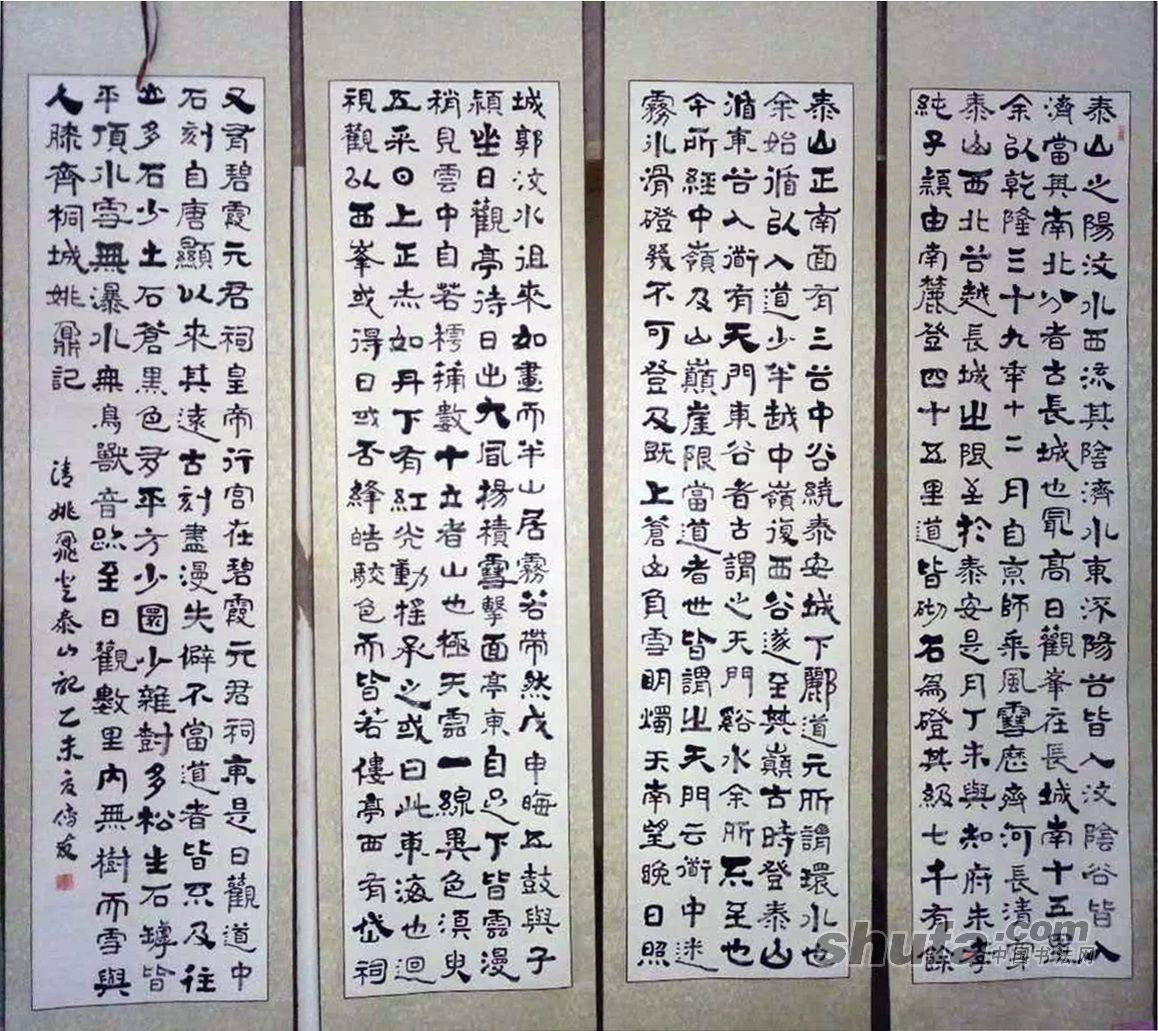 泰山之陽汶水西流其陰濟水東流陽谷皆入汶陰谷皆入
濟當其南北分者古長城也最高日觀峯在長城南十五里
余以乾隆三十九年十二月自京師乘風雪歷齊河長清穿
泰山西北谷越長城之限至於泰安是月丁未與知府朱孝
純子潁由南麓登四十五里道皆砌石為磴其級七千有餘
泰山正南面有三谷中谷繞泰安城下酈道元所謂環水也
余始循以入道少半越中嶺復西谷遂至其巔古時登泰山
循東谷入衟有天門東谷者古謂之天門谿水余所不至也
今所經中嶺及山巔崖限當道者世皆謂之天門云衟中迷
霧冰滑磴幾不可登及既上蒼山負雪明燭天南望晚日照
城郭汶水徂來如畫而半山居霧若帶然戊申晦五鼓與子
潁坐日觀亭待日出大風揚積雪擊面亭東自足下皆雲漫
稍見雲中自若樗蒱數十立者山也極天雲一線異色須臾
五采日上正赤如丹下有紅光動搖承之或曰此東海也迴
視觀以西峯或得日或否絳皓駁色而皆若僂亭西有岱祠
又有碧霞元君祠皇帝行宮在碧霞元君祠東是日觀道中
石刻自唐顯以來其遠古刻盡漫失僻不當道者皆不及往
山多石少土石蒼黑色多平方少圜少雜樹多松生石罅皆
平頂冰雪無瀑水無鳥獸音跡至日觀數里內無樹而雪與
人膝齊桐城姚鼐記
清姚鼐登泰山記乙未夏
shufa.com
中国书法网